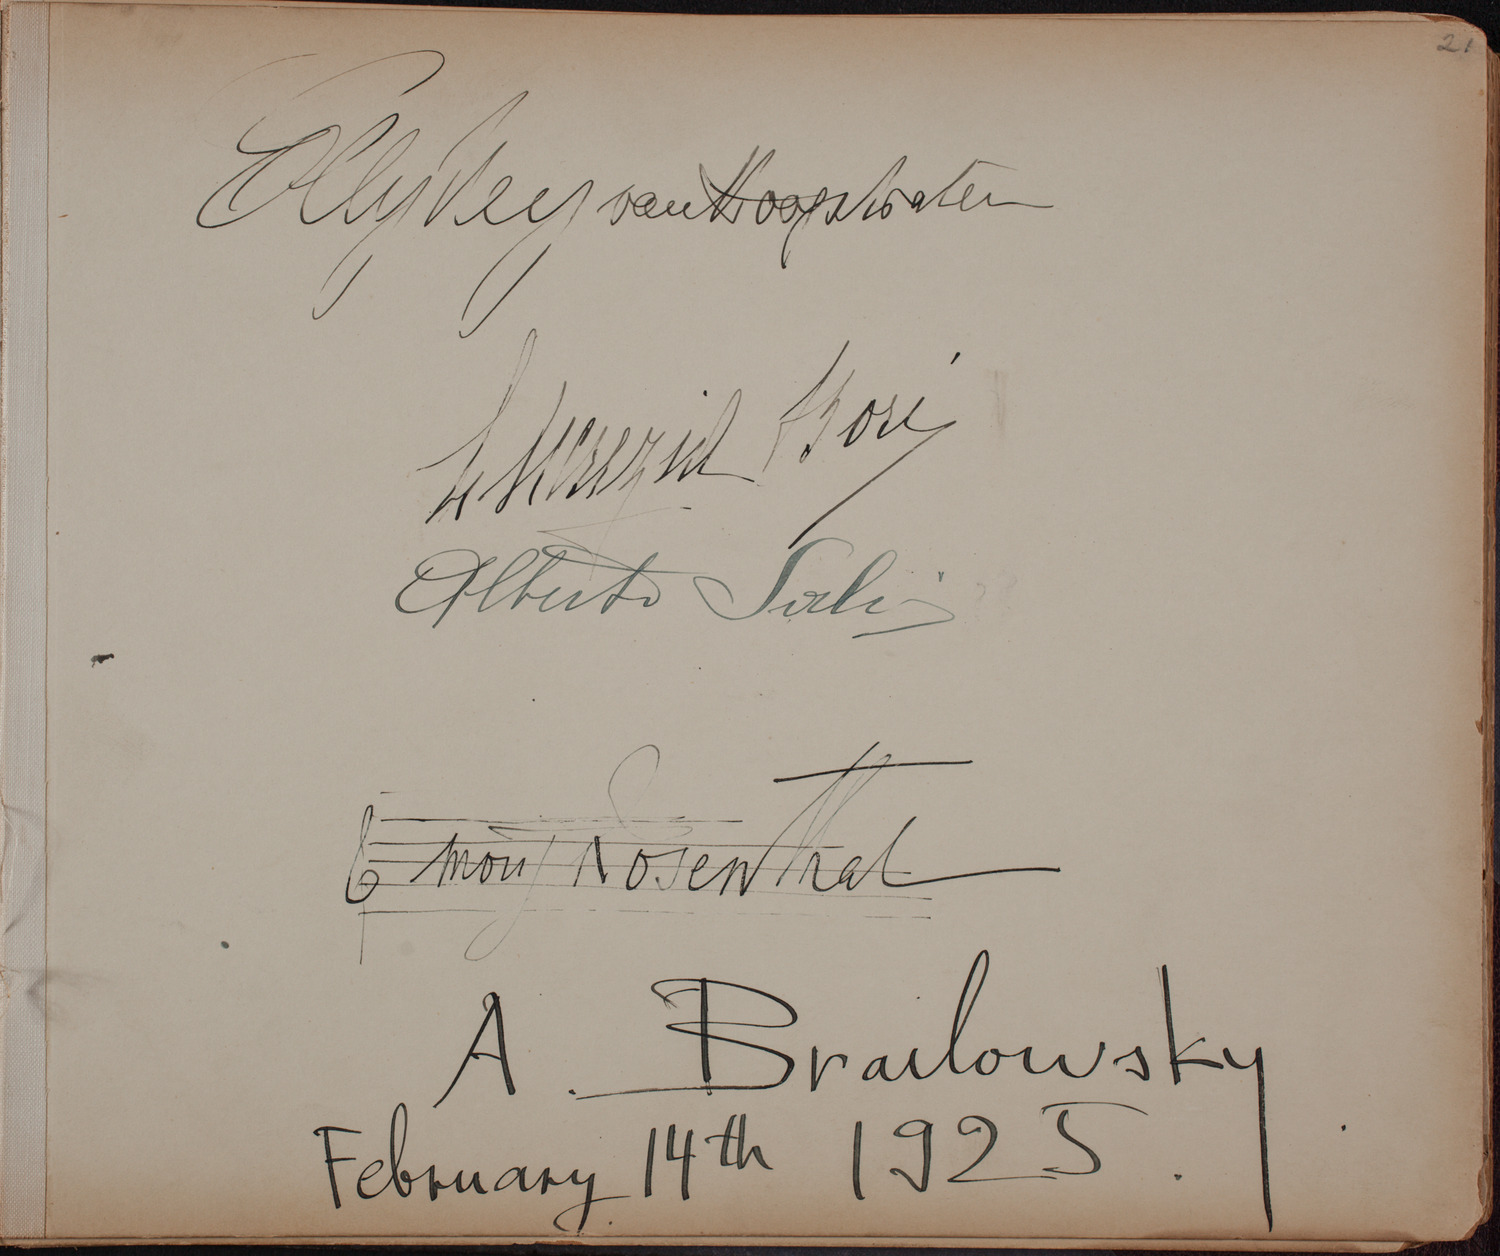 21
Elly Ney van Hoogstraten
Lucrezia Bori
Alberto Salvi
Moriz Rosenthal
A. Brailowsky
February 14th 1925.